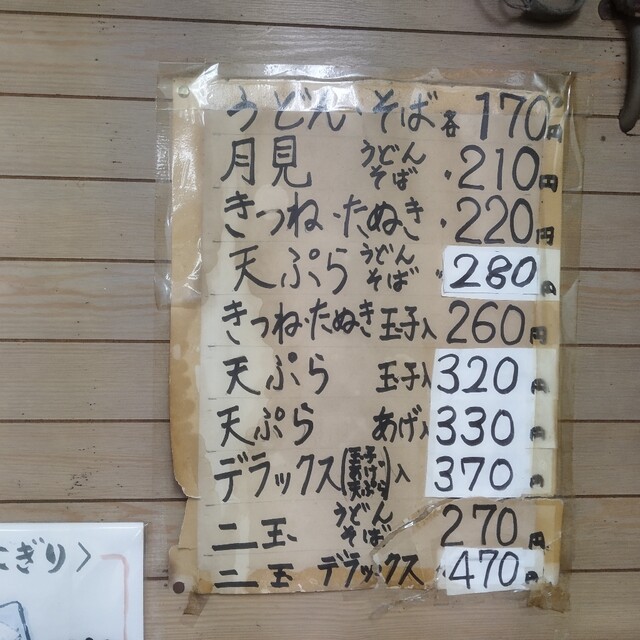 うどん・そば各170円
月見 うどん そば 〃210円
きつね・たぬき 〃220円
天ぷら うどん そば 〃280円
きつね・たぬき玉子入260円
天ぷら 玉子入320円
天ぷら あげ入330円
デラックス(玉子 あげ 天ぷら)入370円
二玉 うどん そば 270円
二玉 デラックス 470円
にぎり〉